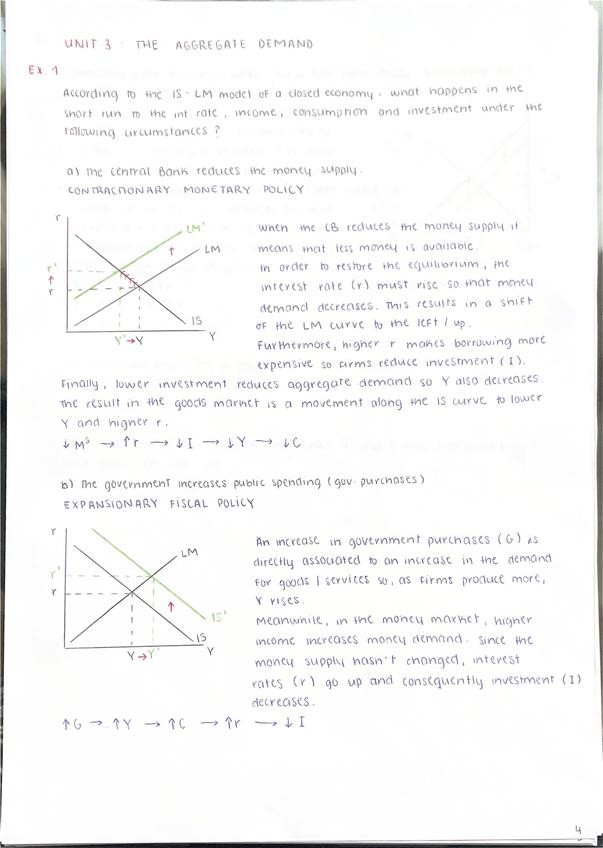 UNIT 3 : THE AGGREGATE DEMAND
Ex. 1
According to the IS - LM model of a closed economy, what happens in the
short run to the int. rate, income, consumption and investment under the
following circumstances ?
a) The Central Bank reduces the money supply.
CONTRACTIONARY MONETARY POLICY
r
LM'
LM
r'
↑
↑
r
IS
Y' → Y
Y
When the CB reduces the money supply it
means that less money is available.
In order to restore the equilibrium, the
interest rate (r) must rise so that money
demand decreases. This results in a shift
of the LM curve to the left / up.
Furthermore, higher r makes borrowing more
expensive so firms reduce investment (I).
Finally, lower investment reduces aggregate demand so Y also decreases.
The result in the goods market is a movement along the IS curve to lower
Y and higher r.
↓ Mˢ → ↑r → ↓I → ↓Y → ↓C
b) The government increases public spending (gov. purchases)
EXPANSIONARY FISCAL POLICY
r
LM
r'
r
↑
IS'
IS
Y → Y'
Y
An increase in government purchases (G) is
directly associated to an increase in the demand
for goods / services so, as firms produce more,
Y rises.
Meanwhile, in the money market, higher
income increases money demand. Since the
money supply hasn't changed, interest
rates (r) go up and consequently investment (I)
decreases.
↑G → ↑Y → ↑C → ↑r → ↓I
4